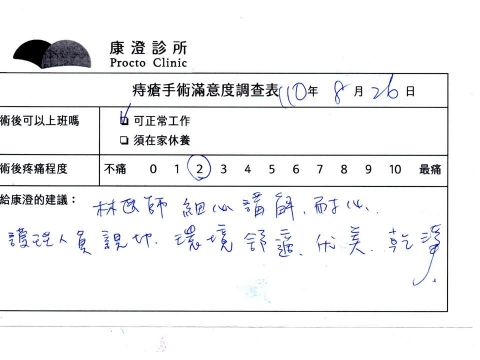 康澄診所
Procto Clinic
痔瘡手術滿意度調查表 110年 8月 26日
術後可以上班嗎 可正常工作
須在家休養
術後疼痛程度 不痛 0 1 2 3 4 5 6 7 8 9 10 最痛
給康澄的建議: 林医師 細心講解、耐心、
護理人員親切、環境舒適、优美、乾淨